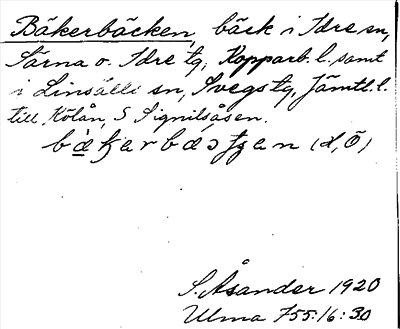 Bäkerbäcken, bäck i Idre sn,
Särna o. Idre tg, Kopparb. l. samt
i Linsälls sn, Svegs tg, Jämtl. l.
till Kölån, S Signilsåsen.
(d, ö)
S. Åsander 1920
Ulma 755:16:30